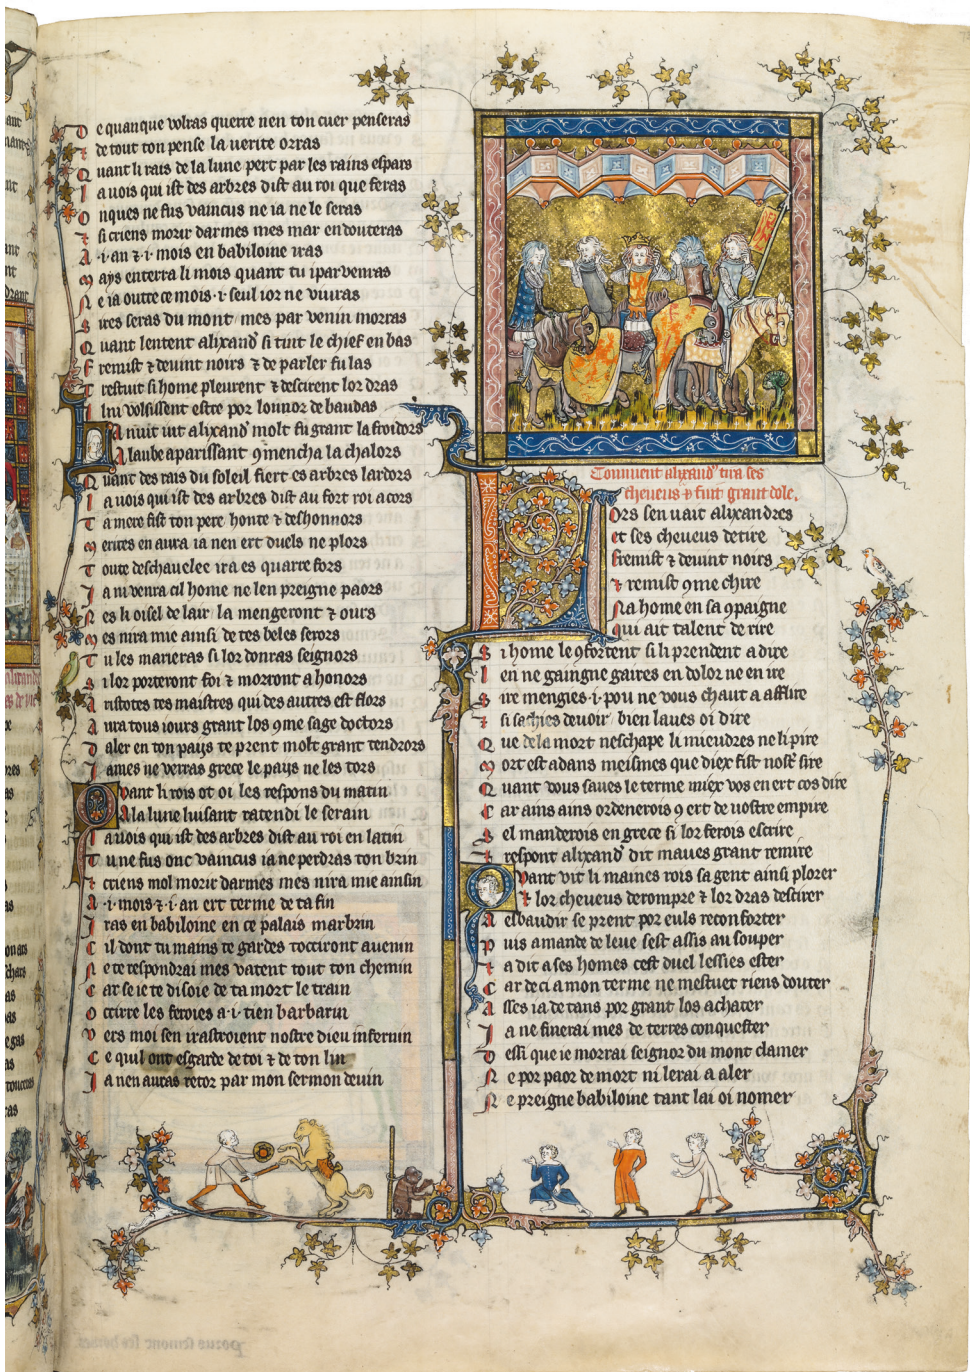 De quanque volras querre nen ton cuer penseras
⁊ de tout ton pense la verite orras
Quant li rais de la lune pert par les rains espars
La vois qui ist des arbres dist au roi que feras
Onques ne fus vaincus ne ia ne le seras
⁊ si criens morir darmes mes mar en douteras
A ·i· an ⁊ ·i· mois en babiloine iras
Mays enterra li mois quant tu i parvenras
Ne ia outre ce mois ·i· seul ior ne vivras
Sires seras du mont mes par venin morras
Quant lentent alixand' si tint le chief en bas
Fremist ⁊ devint noirs ⁊ de parler fu las
Trestuit si home pleurent ⁊ descirent lor dras
I lni volsissent estre por lounor de baudas
La nuit vit alixand' molt fu grant la froidors
A laube aparissant 9mencha la chalors
Quant des rais du soleil fiert es arbres lardors
La vois qui ist des arbres dist au fort roi acors
Ta mere fist ton pere honte ⁊ deshonnors
Merites en aura ia nen ert duels ne plors
Toute deschavelee ira es quarre fors
Ja ni venra cil home ne len preigne paors
Nes li oisel de lair la mengeront ⁊ ours
Mes nira mie ainsi de tes beles serors
Tu les marieras si lor donras seignors
Si lor porteront foi ⁊ mortont a honors
Aristotes tes maistres qui des autres est flors
Aura tous iours grant los 9me sage doctors
Daler en ton pays te prent molt grant tendrors
James ne verras grece le pays ne les tors
Quant li rois ot oi les respons du matin
A la lune luisant ratendi le serain
La vois qui ist des arbres dist au roi en latin
Tu ne fus onc vaincus ia ne perdras ton brin
⁊ criens mol morir darmes mes nira mie ainsin
A ·i· mois ⁊ ·i· an ert terme de ta fin
Iras en babiloine en ce palais marbrin
Cil dont tu mains te gardes tocciront avenin
Ne te respondrai mes va tent tout ton chemin
Car se ie te disoie de ta mort le train
Occirre les feroies a ·i· tien barbarin
Vers moi sen irastroient nostre dieu infernin
Ce quil ont esgarde de toi ⁊ de ton lin
Ja nen auras retor par mon sermon devin
Comment alixand' tira ses
cheveus ⁊ fint grant dole.
Lors sen vait alixandres
et ses cheveus detire
Fremist ⁊ devint noirs
⁊ remist 9me chire
Na home en sa 9paigne
Qui ait talent de rire
Si home le 9fortent si li prendent a dire
Len ne gaingne gaires en dolor ne en ire
Sire mengies ·i· pou ne vous chaut a afflire
⁊ si sachies devoir bien laves oi dire
Que de la mort neschape li mieudres ne li pire
Mort est adans meismes que diex fist nost' sire
Quant vous saves le terme miex vos en ert cos dire
Car ains ains ordenerois 9 ert de vostre empire
Sel manderois en grece si lor ferois escrire
⁊ respont alixand' dit maves grant remire
Quant vit li maines rois sa gent ainsi plorer
⁊ lor cheveus derompre ⁊ lor dras descirer
A elbaudir se prent por euls reconforter
Puis amande de leve sest assis au souper
⁊ a dit a ses homes cest duel lessies ester
Car deci a mon terme ne mestuet riens douter
Asses ia de tans por grant los achater
Ja ne finerai mes de terres conquester
Dessi que ie morrai seignor du mont clamer
Ne por paor de mort ni lerai a aler
Ne preigne babiloine tant lai oi nomer